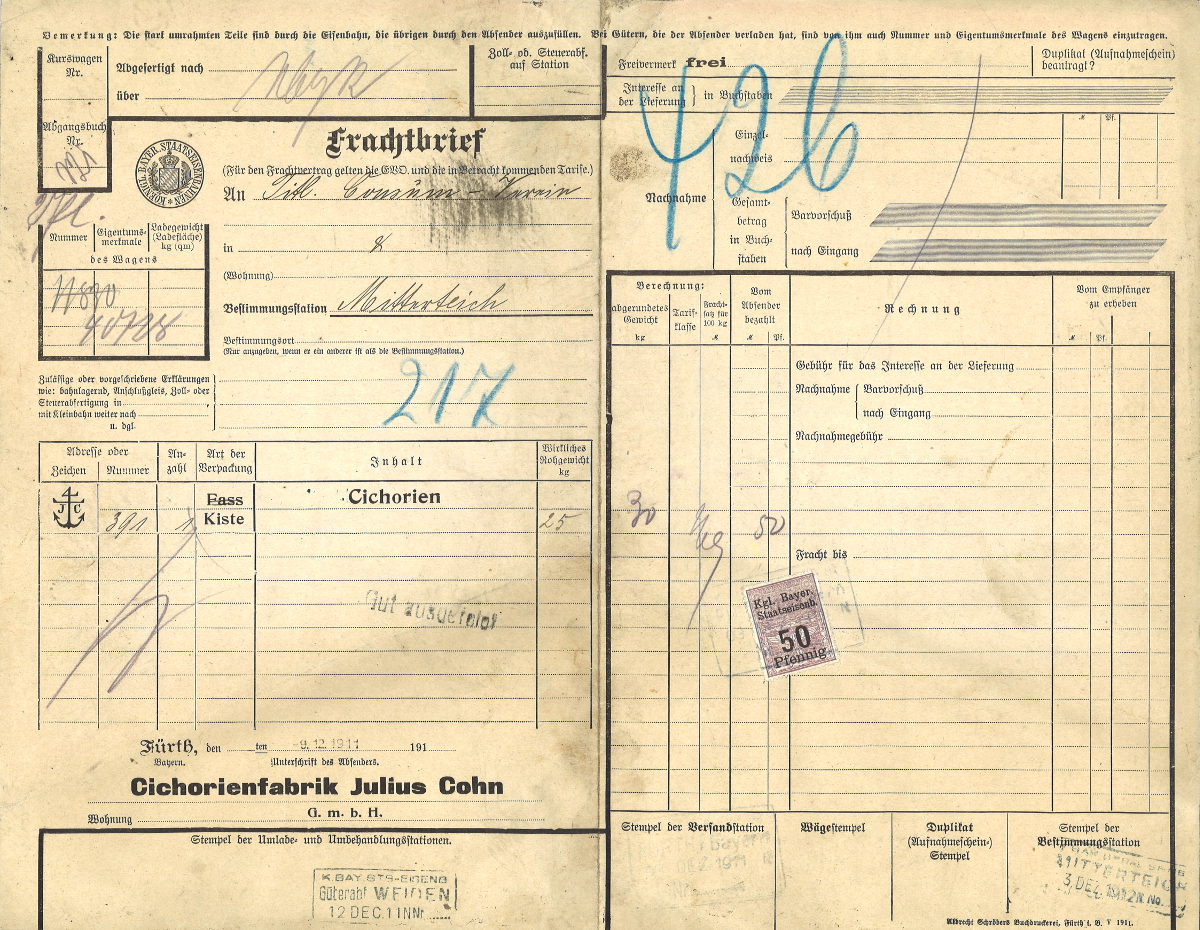 Bemerkung: Die stark umrahmten Teile sind durch die Eisenbahn, die übrigen durch den Absender auszufüllen. Bei Gütern, die der Absender verladen hat, sind von ihm auch Nummer und Eigentumsmerkmale des Wagens einzutragen.
Kurswagen
Nr.
Abgefertigt nach
über
Zoll- od. Steuerabf.
auf Station
Abgangsbuch
Nr.
KOENIGL. BAYER. STAATSEISENBAHNEN
Frachtbrief
(Für den Frachtvertrag gelten die EVO. und die in Betracht kommenden Tarife.)
An Titl. Consum-Verein
in
(Wohnung)
Bestimmungsstation Mitterteich
Bestimmungsort
(Nur anzugeben, wenn er ein anderer ist als die Bestimmungsstation.)
Nummer
Eigentums-
merkmale
Ladegewicht
(Ladefläche)
kg (qm)
des Wagens
40728
Zulässige oder vorgeschriebene Erklärungen
wie: bahnlagernd, Anschlußgleis, Zoll- oder
Steuerabfertigung in
mit Kleinbahn weiter nach
u. dgl.
217
Adresse oder
Zeichen Nummer
An-
zahl
Art der
Verpackung
Inhalt
Wirkliches
Rohgewicht
kg
J C
391 1
Fass
Kiste
Cichorien
25
Gut ausgefolgt
Fürth, den ten 9.12.1911 191
Bayern.
Unterschrift des Absenders.
Cichorienfabrik Julius Cohn
G. m. b. H.
Wohnung
Stempel der Umlade- und Umbehandlungsstationen.
K.BAY.STS-EISENB
Güterabf WEIDEN
12 DEC.11 NNr
Freivermerk frei
Duplikat (Aufnahmeschein)
beantragt?
Interesse an
der Lieferung
in Buchstaben
426
Nachnahme
Einzel-
nachweis
Gesamt-
betrag
in Buch-
staben
Barvorschuß
nach Eingang
M Pf.
Berechnung:
abgerundetes
Gewicht
kg
Tarif-
klasse
Fracht-
satz für
100 kg
M
Vom
Absender
bezahlt
M Pf.
Rechnung
Vom Empfänger
zu erheben
M Pf.
Gebühr für das Interesse an der Lieferung
Nachnahme
Barvorschuß
nach Eingang
Nachnahmegebühr
30
50
Fracht bis
Kgl. Bayer.
Staatseisenb.
50
Pfennig
Stempel der Versandstation
Wägestempel
Duplikat
(Aufnahmeschein-)
Stempel
Stempel der
Bestimmungsstation
MITTERTEICH
Albrecht Schröders Buchdruckerei, Fürth i. B. V 1911.